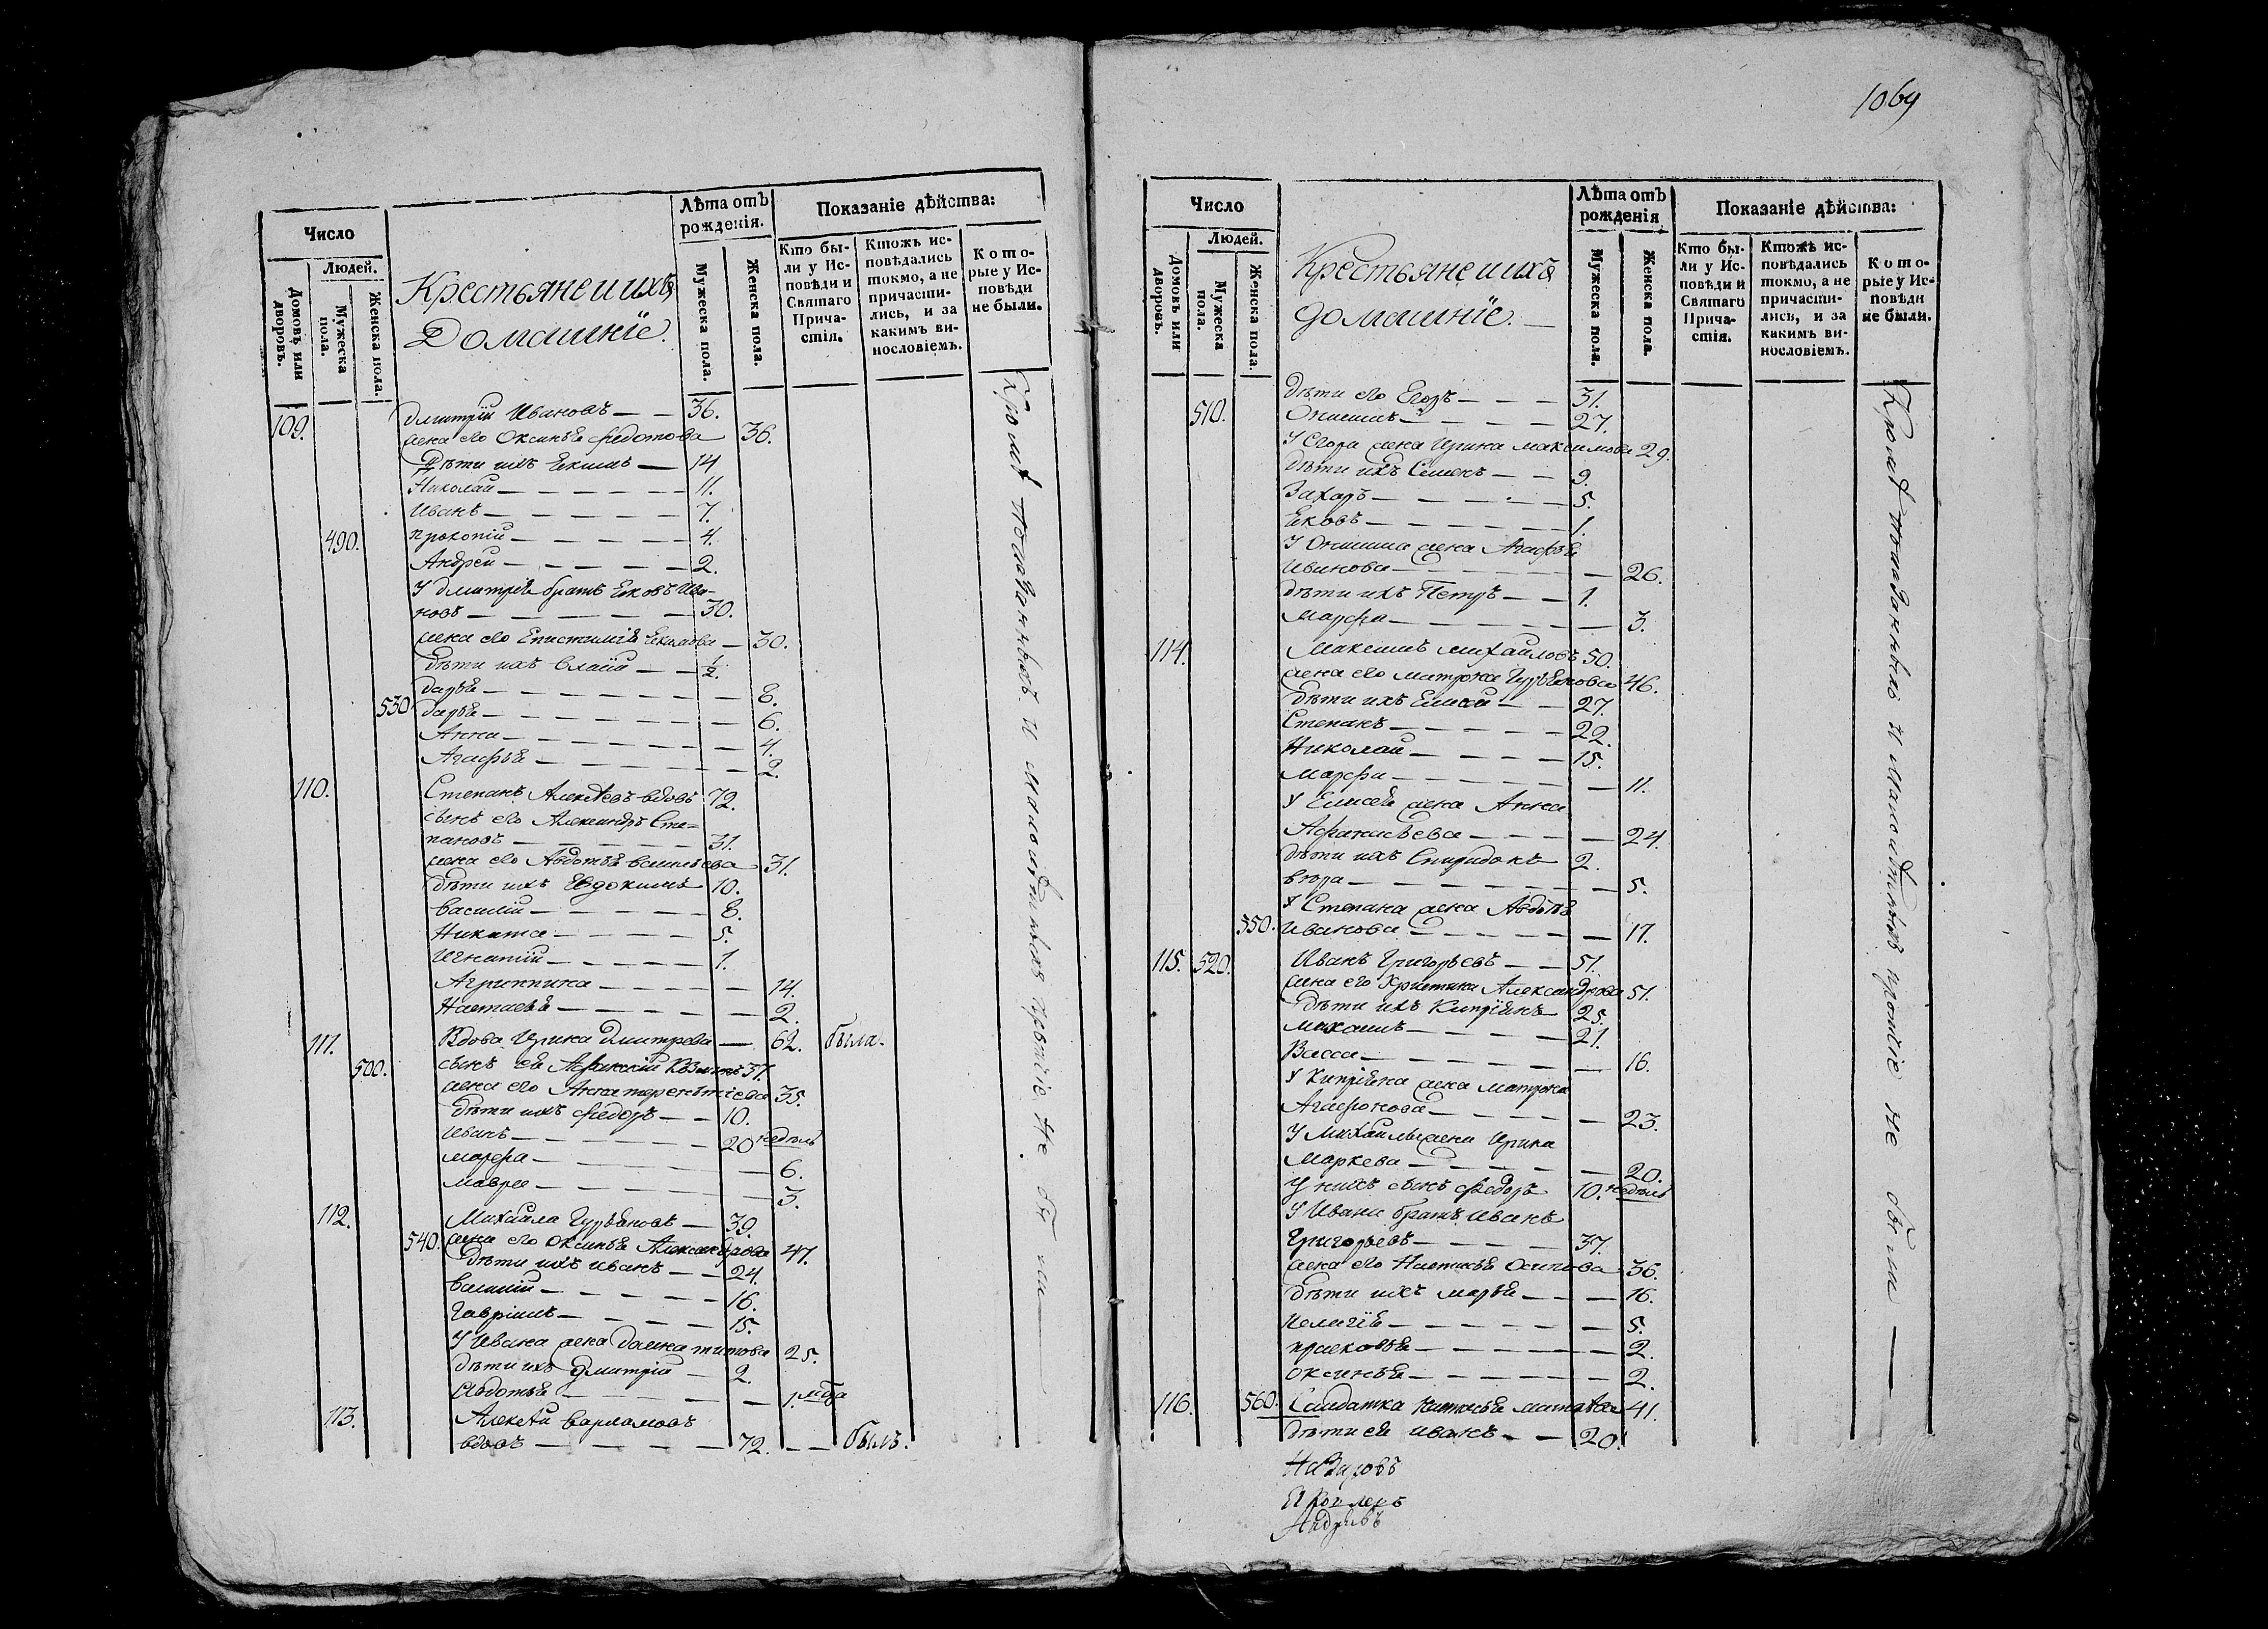 Число
Людей.
Домовъ или дворовъ.
Мужеска пола.
Женска пола.
Крестьяне и ихъ
Домашніе.
Лѣта отъ рожденія.
Мужеска пола.
Женска пола.
Показаніе дѣйства:
Кто бы-
ли у Ис-
повѣди и
Святаго
Прича-
стія.
Ктожъ ис-
повѣдались
токмо, а не
причасти-
лись, и за
какимъ ви-
нословіемъ.
Кото-
рые у Ис-
повѣди
не были.
109. Дмитрій Ивановъ — — 36.
жена его Оксинья Федотова 36.
Дѣти ихъ Екимъ — 14
Николай — 11.
Иванъ — 7.
490. Прокопій — 4.
Андрей — 2.
У Дмитрія братъ Яковъ Ива-
новъ — 30.
жена его Епистимія Екимова — 30.
дѣти ихъ Власій — ½.
дарья — 8.
530 дарья — 6.
Анна — 4.
Агафья — 2.
110. Степанъ Алексѣевъ вдовъ 72.
сынъ его Александръ Сте=
пановъ — 31.
жена его Авдотья Васильева 31.
дѣти ихъ Евдокимъ 10.
Василій — 8.
Никита — 5.
Игнатій — 1.
Агриппина — 14.
Настасья — 2.
111. Вдова Ирина Дмитрева — 62. была.
500. сынъ ея Афанасій Козминъ 37.
жена его Анна терентіева 35.
дѣти ихъ Федоръ — 10.
Иванъ — 20 недѣль
марфа — 6.
мавра — 3.
112. Михаила Гурьяновъ — 39.
540. жена его Оксинья Александрова 47.
дѣти ихъ иванъ — 24.
Василій — 16.
Гавріилъ — 15.
У Ивана жена Домна титова 25.
дѣти ихъ Дмитрій — 2.
Авдотья — 1. мца
113. Алексѣй Варламовъ
вдовъ — 72. — — былъ.
Кромѣ показанныхъ и малолѣтныхъ прочіе не были —
1069
Число
Людей.
Домовъ или дворовъ.
Мужеска пола.
Женска пола.
Крестьяне и ихъ
домашніе. —
Лѣта отъ рожденія
Мужеска пола.
Женска пола.
Показаніе дѣйства:
Кто бы-
ли у Ис-
повѣди и
Святаго
Прича-
стія.
Ктожъ ис-
повѣдались
токмо, а не
причасти-
лись, и за
какимъ ви-
нословіемъ.
Кото-
рые у Ис-
повѣди
не были.
дѣти его Егоръ — 31.
510. Онисимъ — 27.
У Егора жена Ирина максимова 29.
дѣти ихъ Семенъ — 9.
Захаръ — 5.
Яковъ — 1.
У Онисима жена Агафья
Иванова — 26.
дѣти ихъ Петръ — 1.
Марфа — 3.
114. Максимъ михайловъ 50.
жена его матрона Гурьянова 46.
дѣти ихъ Елисей — 27.
Степанъ — 22.
Николай — 15.
Марфа — 11.
У Елисея жена Анна
Афанасьева — 24.
дѣти ихъ Спиридонъ 2.
вѣра — 5.
У Степана жена Авдотья
550. Иванова — 17.
115. 520. Иванъ Григорьевъ — 51.
жена его Христина Александрова 51.
дѣти ихъ Кипріянъ 25.
михаилъ — 21.
Васса — 16.
У Кипріяна жена матрона
Агафонова — 23.
У Михаилы жена Ирина
Маркева — 20.
У нихъ сынъ Федоръ 10. недѣль
У Ивана братъ иванъ
Григорьевъ — 37.
жена его Настасья Осипова 36.
дѣти ихъ марья — 16.
Пелагія — 5.
прасковья — 2.
оксинья — 2.
116. 560. Салдатка Настасья матвѣева 41.
дѣти ея иванъ — 20.
Кромѣ показанныхъ и малолѣтныхъ прочіе не были —